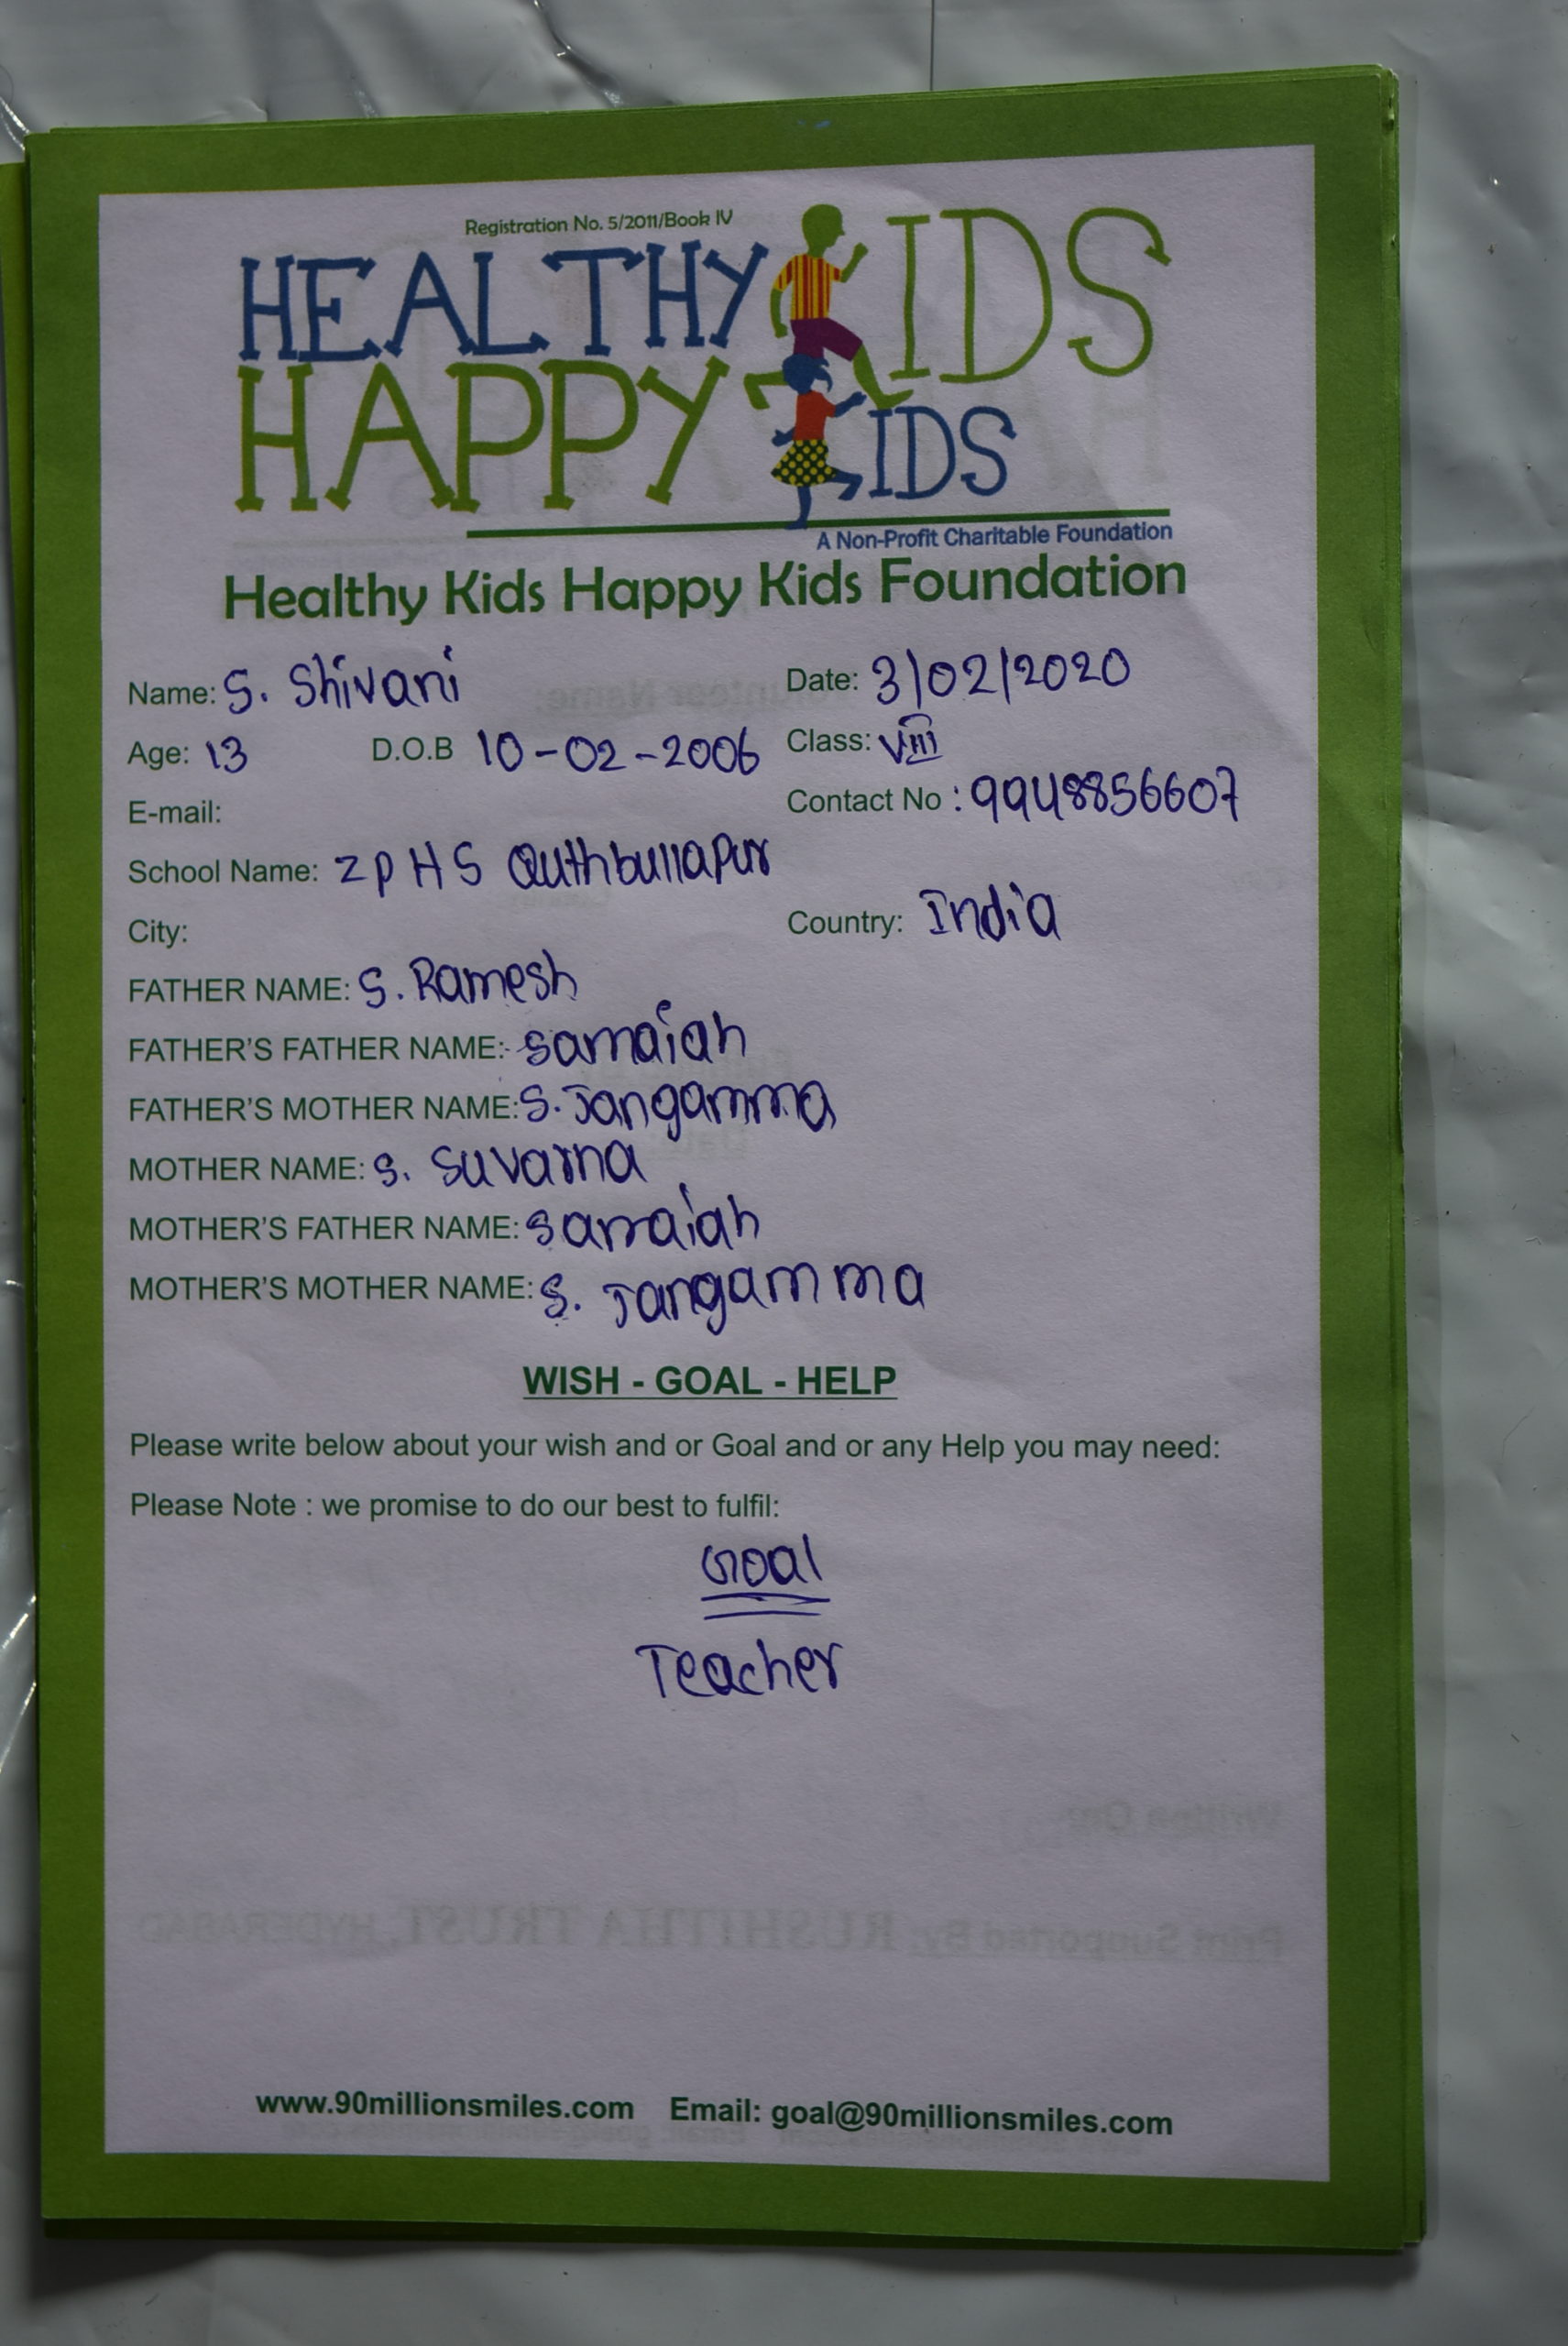 Registration No. 5/2011/Book IV
HEALTHY KIDS
HAPPY KIDS
A Non-Profit Charitable Foundation
Healthy Kids Happy Kids Foundation
Name: S. Shivani Date: 3/02/2020
Age: 13 D.O.B 10-02-2006 Class: VIII
E-mail: Contact No : 9948856607
School Name: ZPHS Quthbullapur
City: Country: India
FATHER NAME: S. Ramesh
FATHER'S FATHER NAME: Samaiah
FATHER'S MOTHER NAME: S. Jangamma
MOTHER NAME: S. Suvarna
MOTHER'S FATHER NAME:
MOTHER'S MOTHER NAME: S. Jangamma
WISH - GOAL - HELP
Please write below about your wish and or Goal and or any Help you may need:
Please Note : we promise to do our best to fulfil:
Goal
Teacher
Written On:
Print Supported By: RUSHITHA TRUST, HYDERABAD
www.90millionsmiles.com Email: goal@90millionsmiles.com